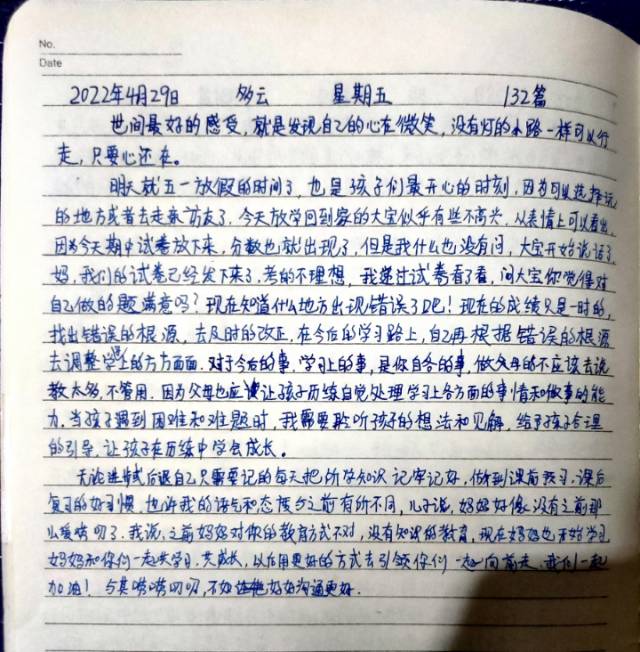 No.
Date
2022年4月29日 多云 星期五 132篇
世间最好的感受，就是发现自己的心在微笑，没有灯的小路一样可以行
走，只要心还在。
明天就五一放假的时间了，也是孩子们最开心的时刻，因为可以选择玩
的地方或者去走亲访友了．今天放学回到家的大宝似乎有些不高兴，从表情上可以看出，
因为今天期中试卷放下来，分数也就出现了，但是我什么也没有问，大宝开始说话了，
妈，我们的试卷已经发下来了．考的不理想，我递过试卷看了看，问大宝你觉得对
自己做的题满意吗？现在知道什么地方出现错误了吧！现在的成绩只是一时的，
找出错误的根源，去及时的改正．在今后的学习路上，自己再根据错误的根源
去调整学习上的方方面面．对于今后的事，学习上的事，是你自各的事，做父母的不应该去说
教太多，不管用．因为父母也应该让孩子历练自觉处理学习上各方面的事情和做事的能
力．当孩子遇到困难和难题时，我需要聆听孩子的想法和见解，给予孩子合理
的引导，让孩子在历练中学会成长。
无论进步或后退自己只需要记的每天把所学知识记牢记好，做到课前预习．课后
复习的好习惯，也许我的语气和态度与之前有所不同，儿子说，妈妈好像没有之前那
么唠叨了．我说，之前妈妈对你的教育方式不对，没有知识的教育，现在妈妈也开始学习
妈妈和你们一起共学习．共成长，以后用更好的方式去引领你们一起向前走，我们一起
加油！与其唠唠叨叨，不如好好沟通更好．